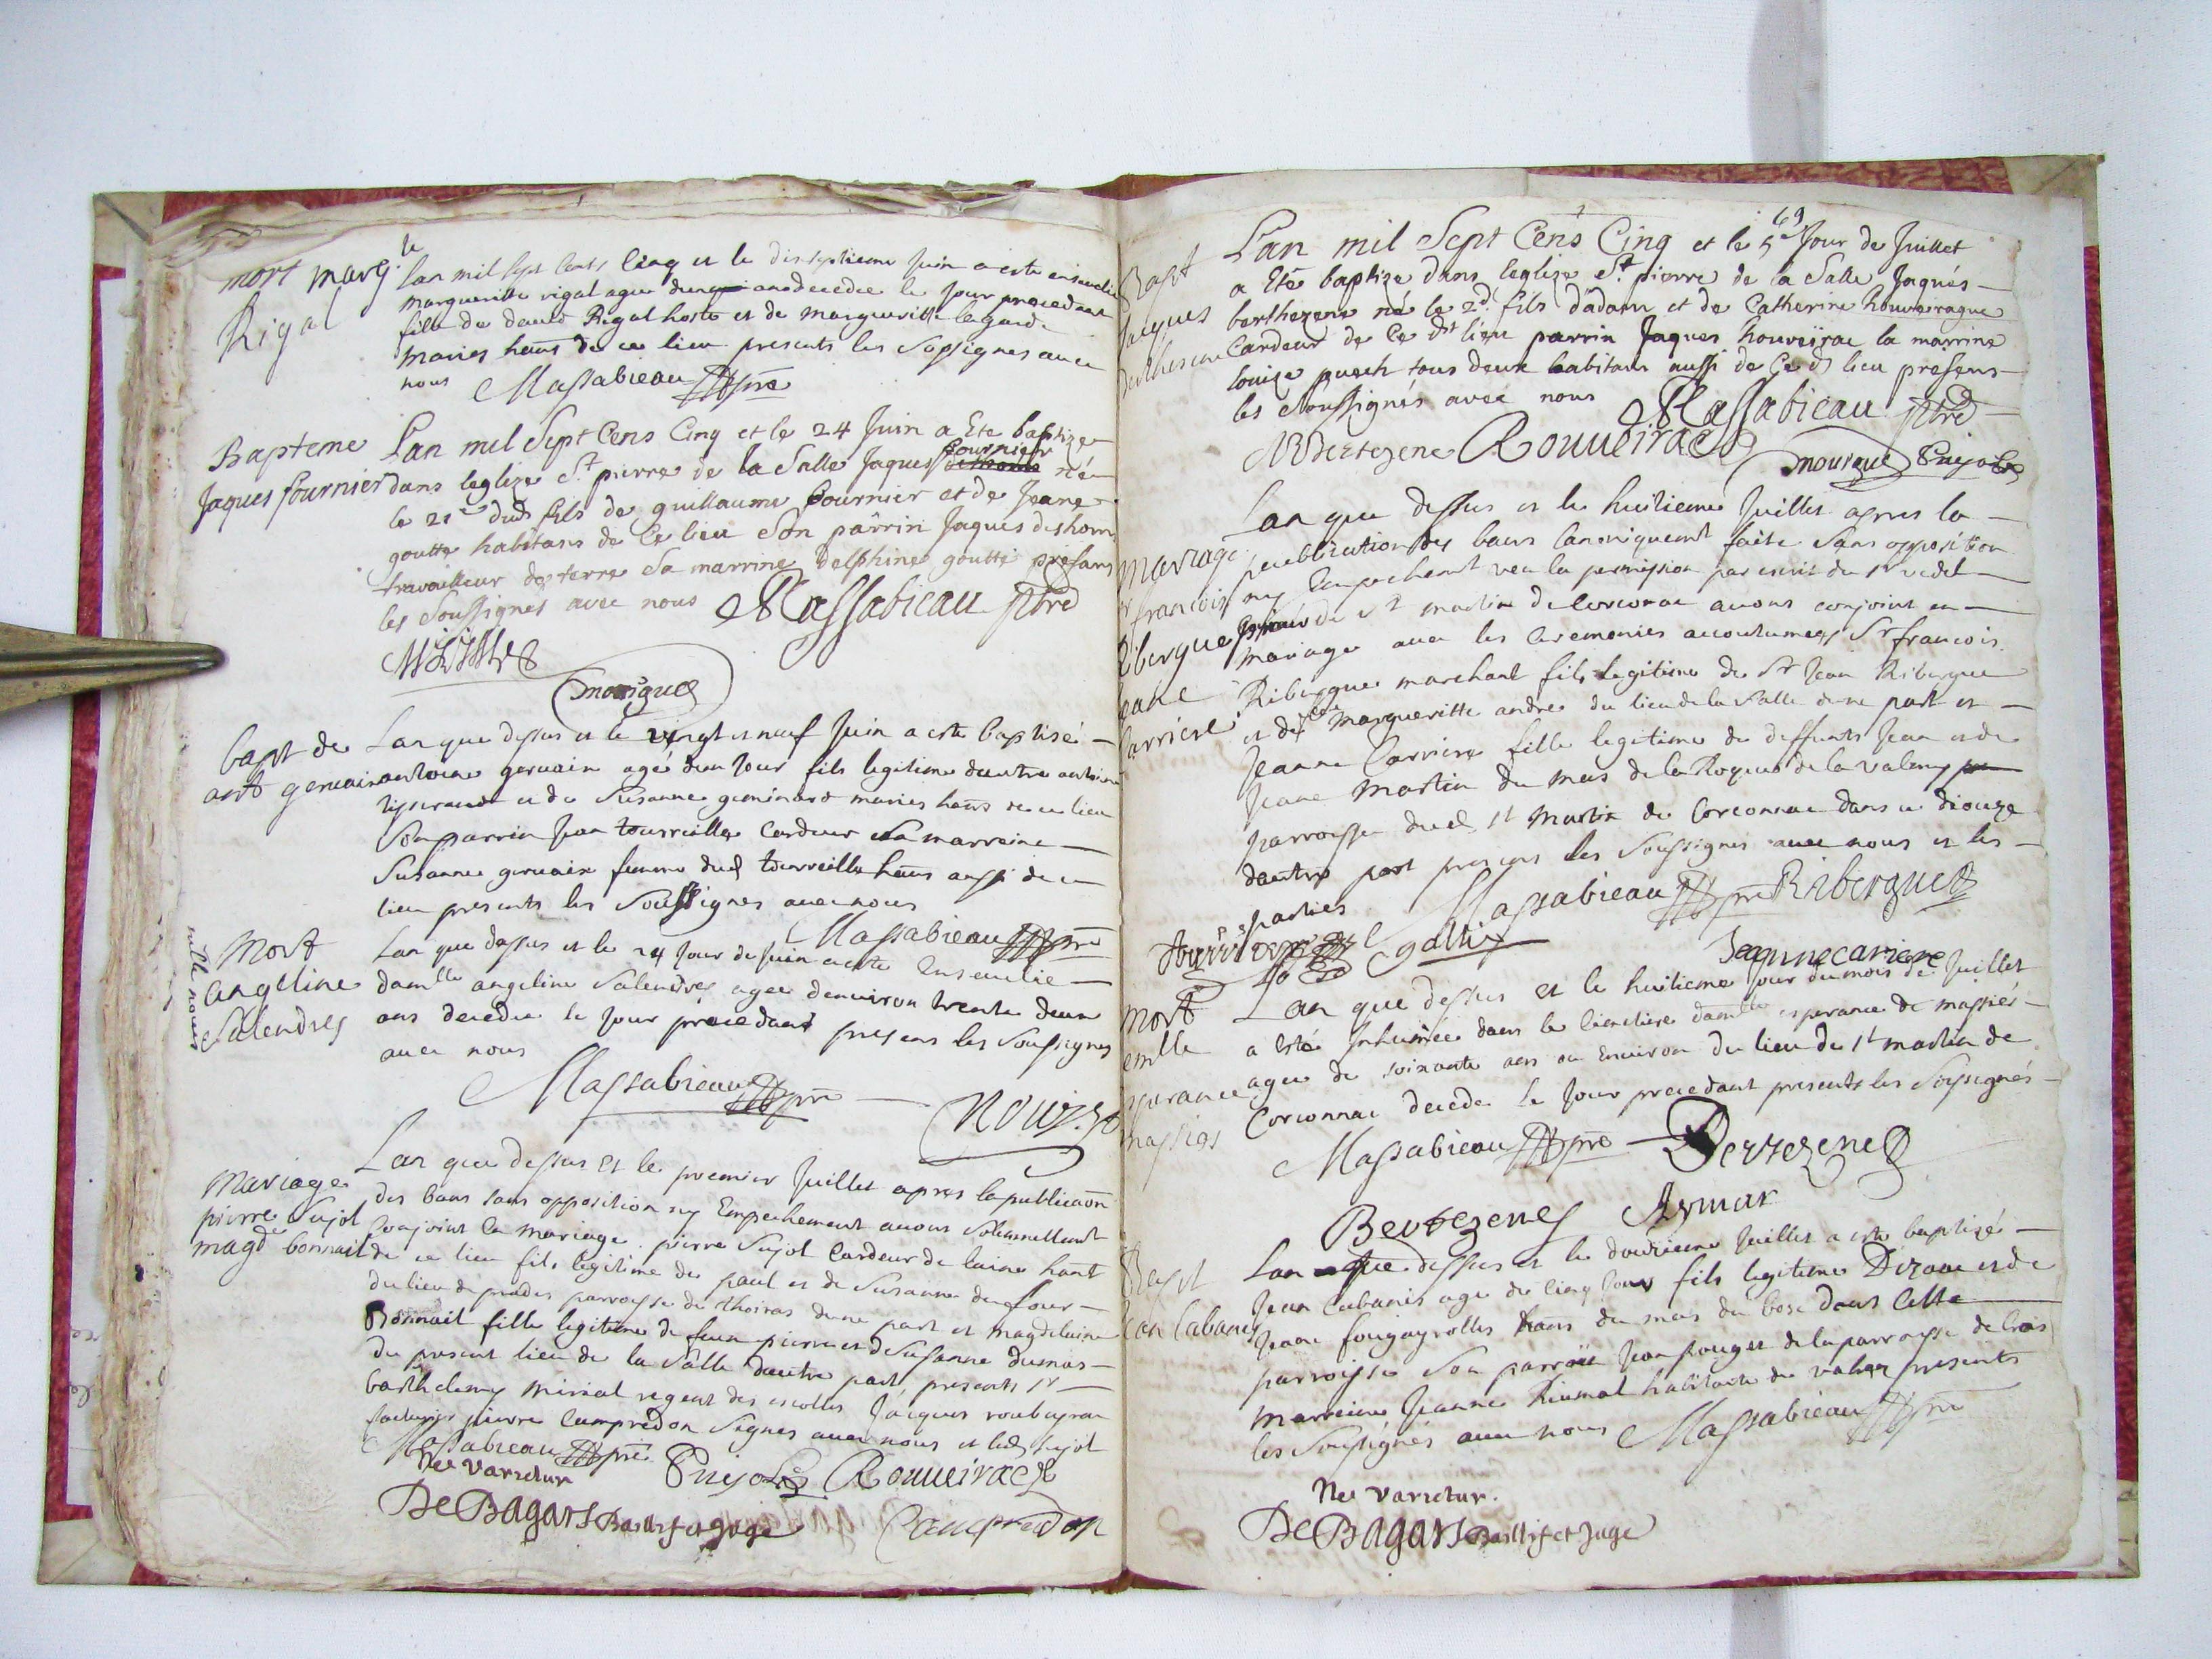 mort marg.te
Rigal
lan mil sept cents cinq et le dixseptieme juin a esté ensevelie
margueritte rigal agee dun an decedee le jour precedent
fille de david Rigal hoste et de margueritte lagarde
maries hans de ce lieu presents les sossignes avec
nous Massabieau ptre
Bapteme
Jaques fournier
Lan mil Sept Cens Cinq et le 24 Juin a Ete baptize
dans leglize St pierre de la Salle Jaques fournier né
le 21e dud fils de guillaume fournier et de Jeane
goutte habitans de Ce lieu Son parrin Jaques deshons
travailleur de terre Sa marrine delphine goutte presans
les Soussignés avec nous Massabieau ptre
mourgue
bapt de
ant gervais
Lan que dessus et le vingt et neuf Juin a este baptisé
antoine gervais agé dun Jour fils legitime dautre antoine
et de Susanne maries hans de ce lieu
Son parrin Jean tourreille Cardeur sa marraine
Susanne gervais femme dud tourreille hans aussi de ce
lieu presents les Soussignes avec nous
Massabieau ptre
Mort
angeline
Salendres
mlle nouis
Lan que dessus et le 24 Jour de Juin a este Ensevelie
damlle angeline Salendres agee denviron trente deux
ans decedee le Jour precedant presens les Soussignes
avec nous
Massabieau ptre
Mariage
pierre Pujol
magd bonnail
Lan que dessus Et le premier Juillet apres la publicaon
des bans sans opposition ny Empechement avons Solennellement
Conjoint En mariage pierre Pujol Cardeur de laine hant
de ce lieu fils legitime de paul et de Susanne
du lieu de prades parroisse de thoiras dune part et magdelaine
Bonnail fille legitime de feus pierre et de Susanne dumas
du present lieu de la Salle dautre part presents sr
barthelemy regent des escolles Jacques rouveyrac
pierre Campredon Signes avec nous et led Pujol
Massabieau ptre Pujol Rouveirac
Ne varietur
De Bagars Baillif et Juge Campredon
Bapt
Jaques
berthezene
Lan mil Sept Cens Cinq et le 5e Jour de Juillet
a Eté baptize dans leglize St pierre de la Salle Jaques
berthezene né le 2d fils dadam et de Catherine houveiragne
Cardeur de Ce dt lieu parrin Jaques houveirac la marrine
louize puech tous deux habitans aussi de Ce d lieu presens
les Soussignés avec nous Massabieau ptre
Bertezene Rouveirac
mourgue Pujol
Mariage
sr francois
Ribergue
Jeane
Carriere
Lan que dessus et le huitieme Juillet apres la
publication des bans Canoniquement faite Sans opposition
ny Empechement veu la permission par escrit du sr vedel
prieur de St martin de Corconac avons conjoint en
Mariage avec les Ceremonies accoutumees Sr francois
Ribergue marchant fils legitime de Sr Jean Ribergue
et de margueritte andre du lieu de la Salle dune part et
Jeanne Carriere fille legitime de deffunts Jean et de
Jeane Martin du mas de la Roque de la valeny
parroisse dud St Martin de Corconnac dans ce dioceze
dautre part presens les Soussignes avec nous et les
parties Massabieau ptre Ribergue
galtie
Jeanne cariere
Mort
emlle
esperance
massies
Lan que dessus et le huitieme Jour du mois de Juillet
a esté Inhumée dans le Cimetiere damlle esperance de massiés
agee de soixante ans ou Environ du lieu de St martin de
Corconnac decede le Jour precedant presents les Sossignés
Massabieau ptre Bertezene
Bertezene Aymar
Bapt
Jean Cabanis
Lan que dessus et le douzieme Juillet a este baptizé
Jean Cabanis age de cinq Jours fils legitime et de
Jeane fougayrolles hans du mas du bosc dans Cette
parroisse Son parrain Jean pouget de la parroisse de Cros
Marreine Jeanne habitante de presents
les Soussignés avec nous Massabieau ptre
Ne varietur.
De Bagars Baillif et Juge